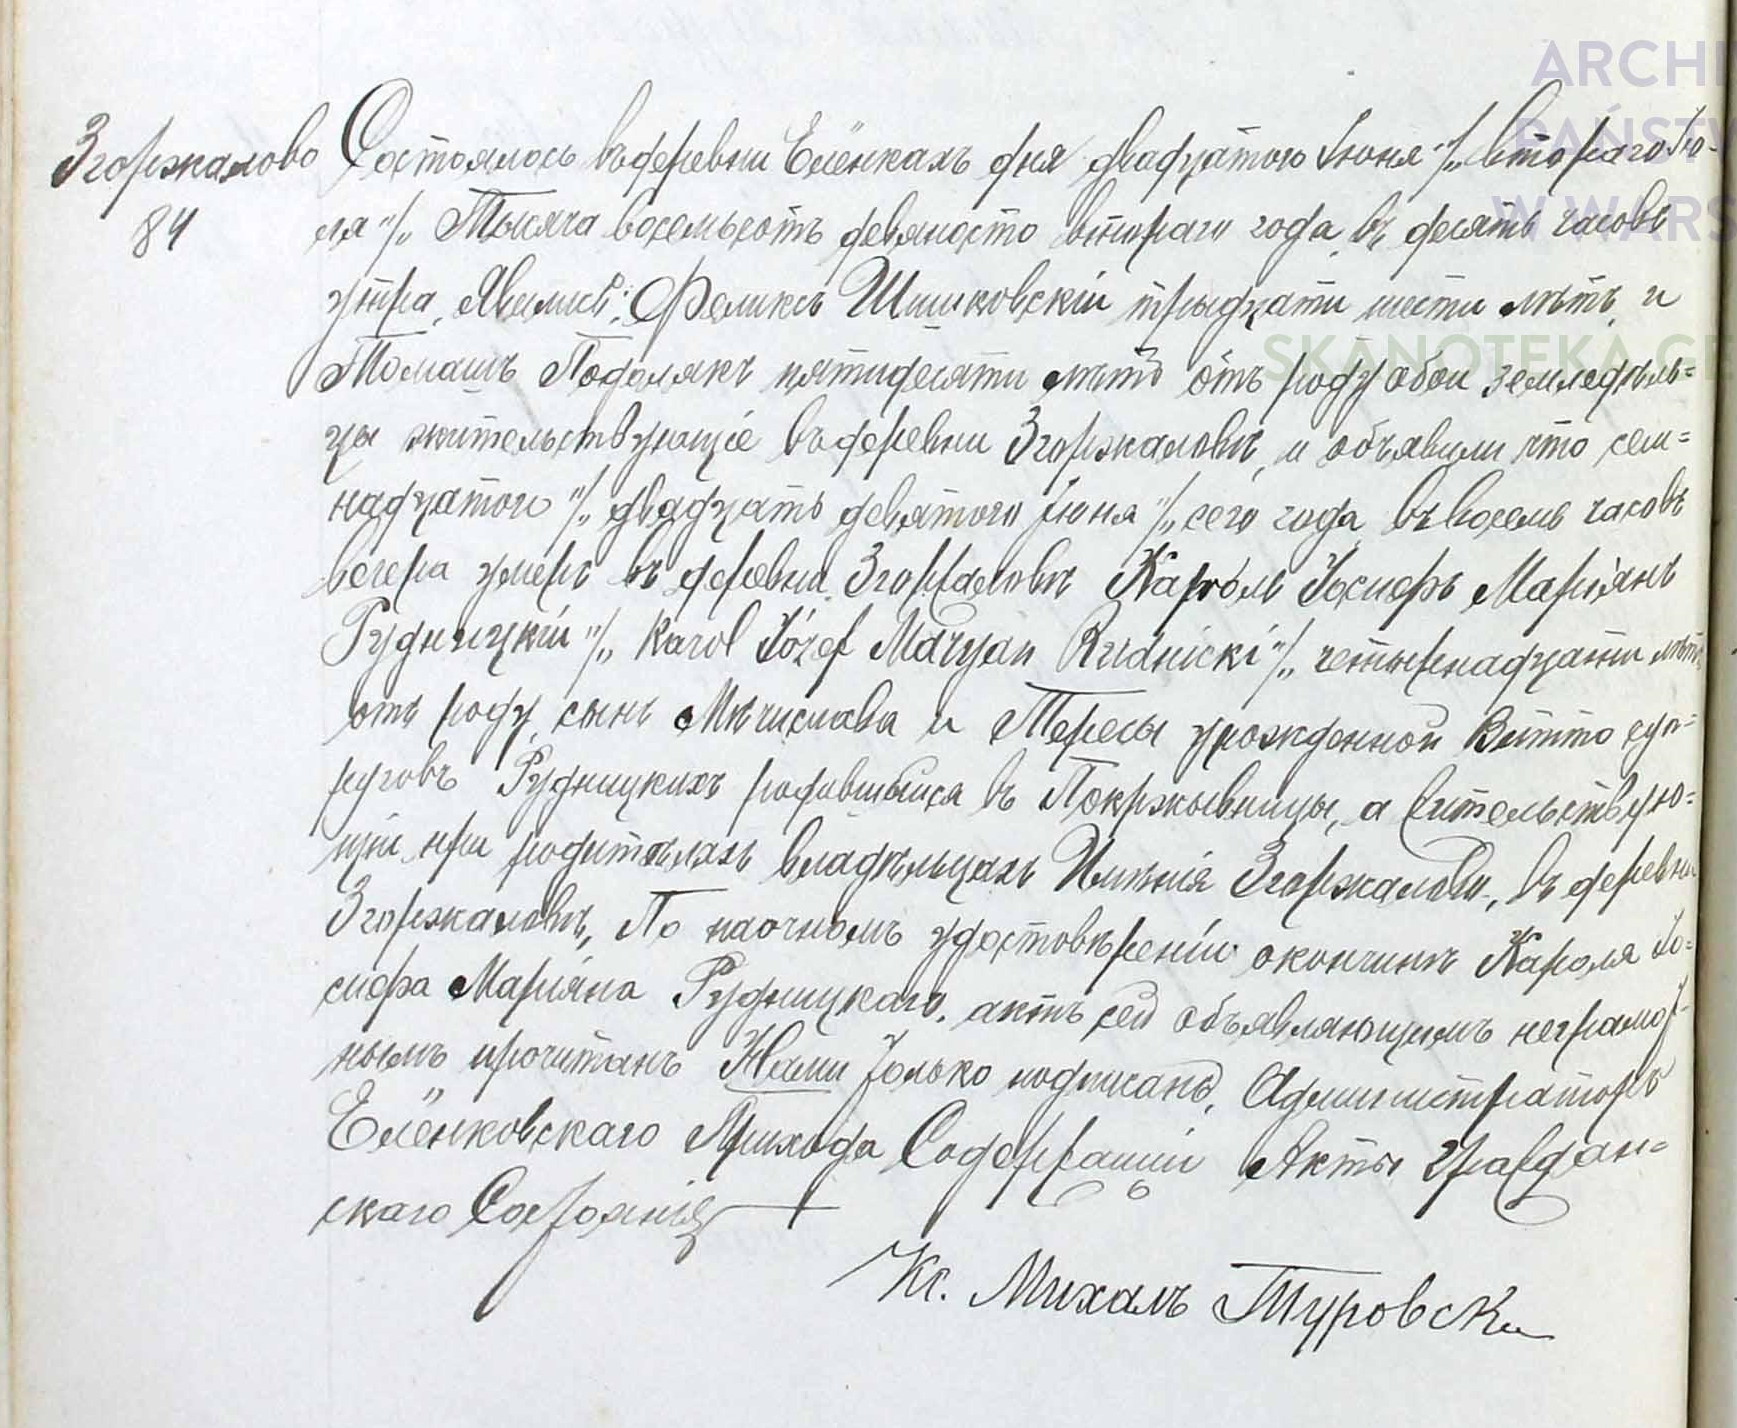 Згоржалово
84
Состоялось въ деревни Еленкахъ дня двадцатого Іюня /„ второго Ію-
ля "/„ Тысяча восемьсотъ девяносто второго года, въ десять часовъ
утра, Явились: Феликсъ Шишковскій тридцати шести лѣтъ, и
Томашъ Подолякъ пятидесяти лѣтъ отъ роду обои земледѣль=
цы жительствующіе въ деревни Згоржаловѣ, и объявили что сем=
надцатого "/„ двадцать девятого Іюня "/„ сего года, въ восемь часовъ
вечера умеръ въ деревни Згоржаловѣ Кароль Іосифъ Маріянъ
Рудницкій "/„ Karol Józef Maryan Rudnicki "/„ четырнадцати лѣтъ
отъ роду, сынъ Мѣчислава и Тересы урожденной Витто суп=
руговъ Рудницкихъ родившыйся въ Покржывницы, а жительствую=
щій при родителяхъ владѣльцахъ Имѣнія Згоржалово, въ деревни
Згоржаловѣ, По наочномъ удостовѣреніи окончинѣ Кароля Іо=
сифа Маріяна Рудницкаго, актъ сей объявляющимъ неграмот-
нымъ прочитанъ Нами только подписанъ, Администраторъ
Еленковскаго Прихода Содержащій Акты граждан=
скаго Состоянія
Кс. Михалъ Туровски
ARCHI
PAŃSTW
W WARS
SKANOTEKA GE